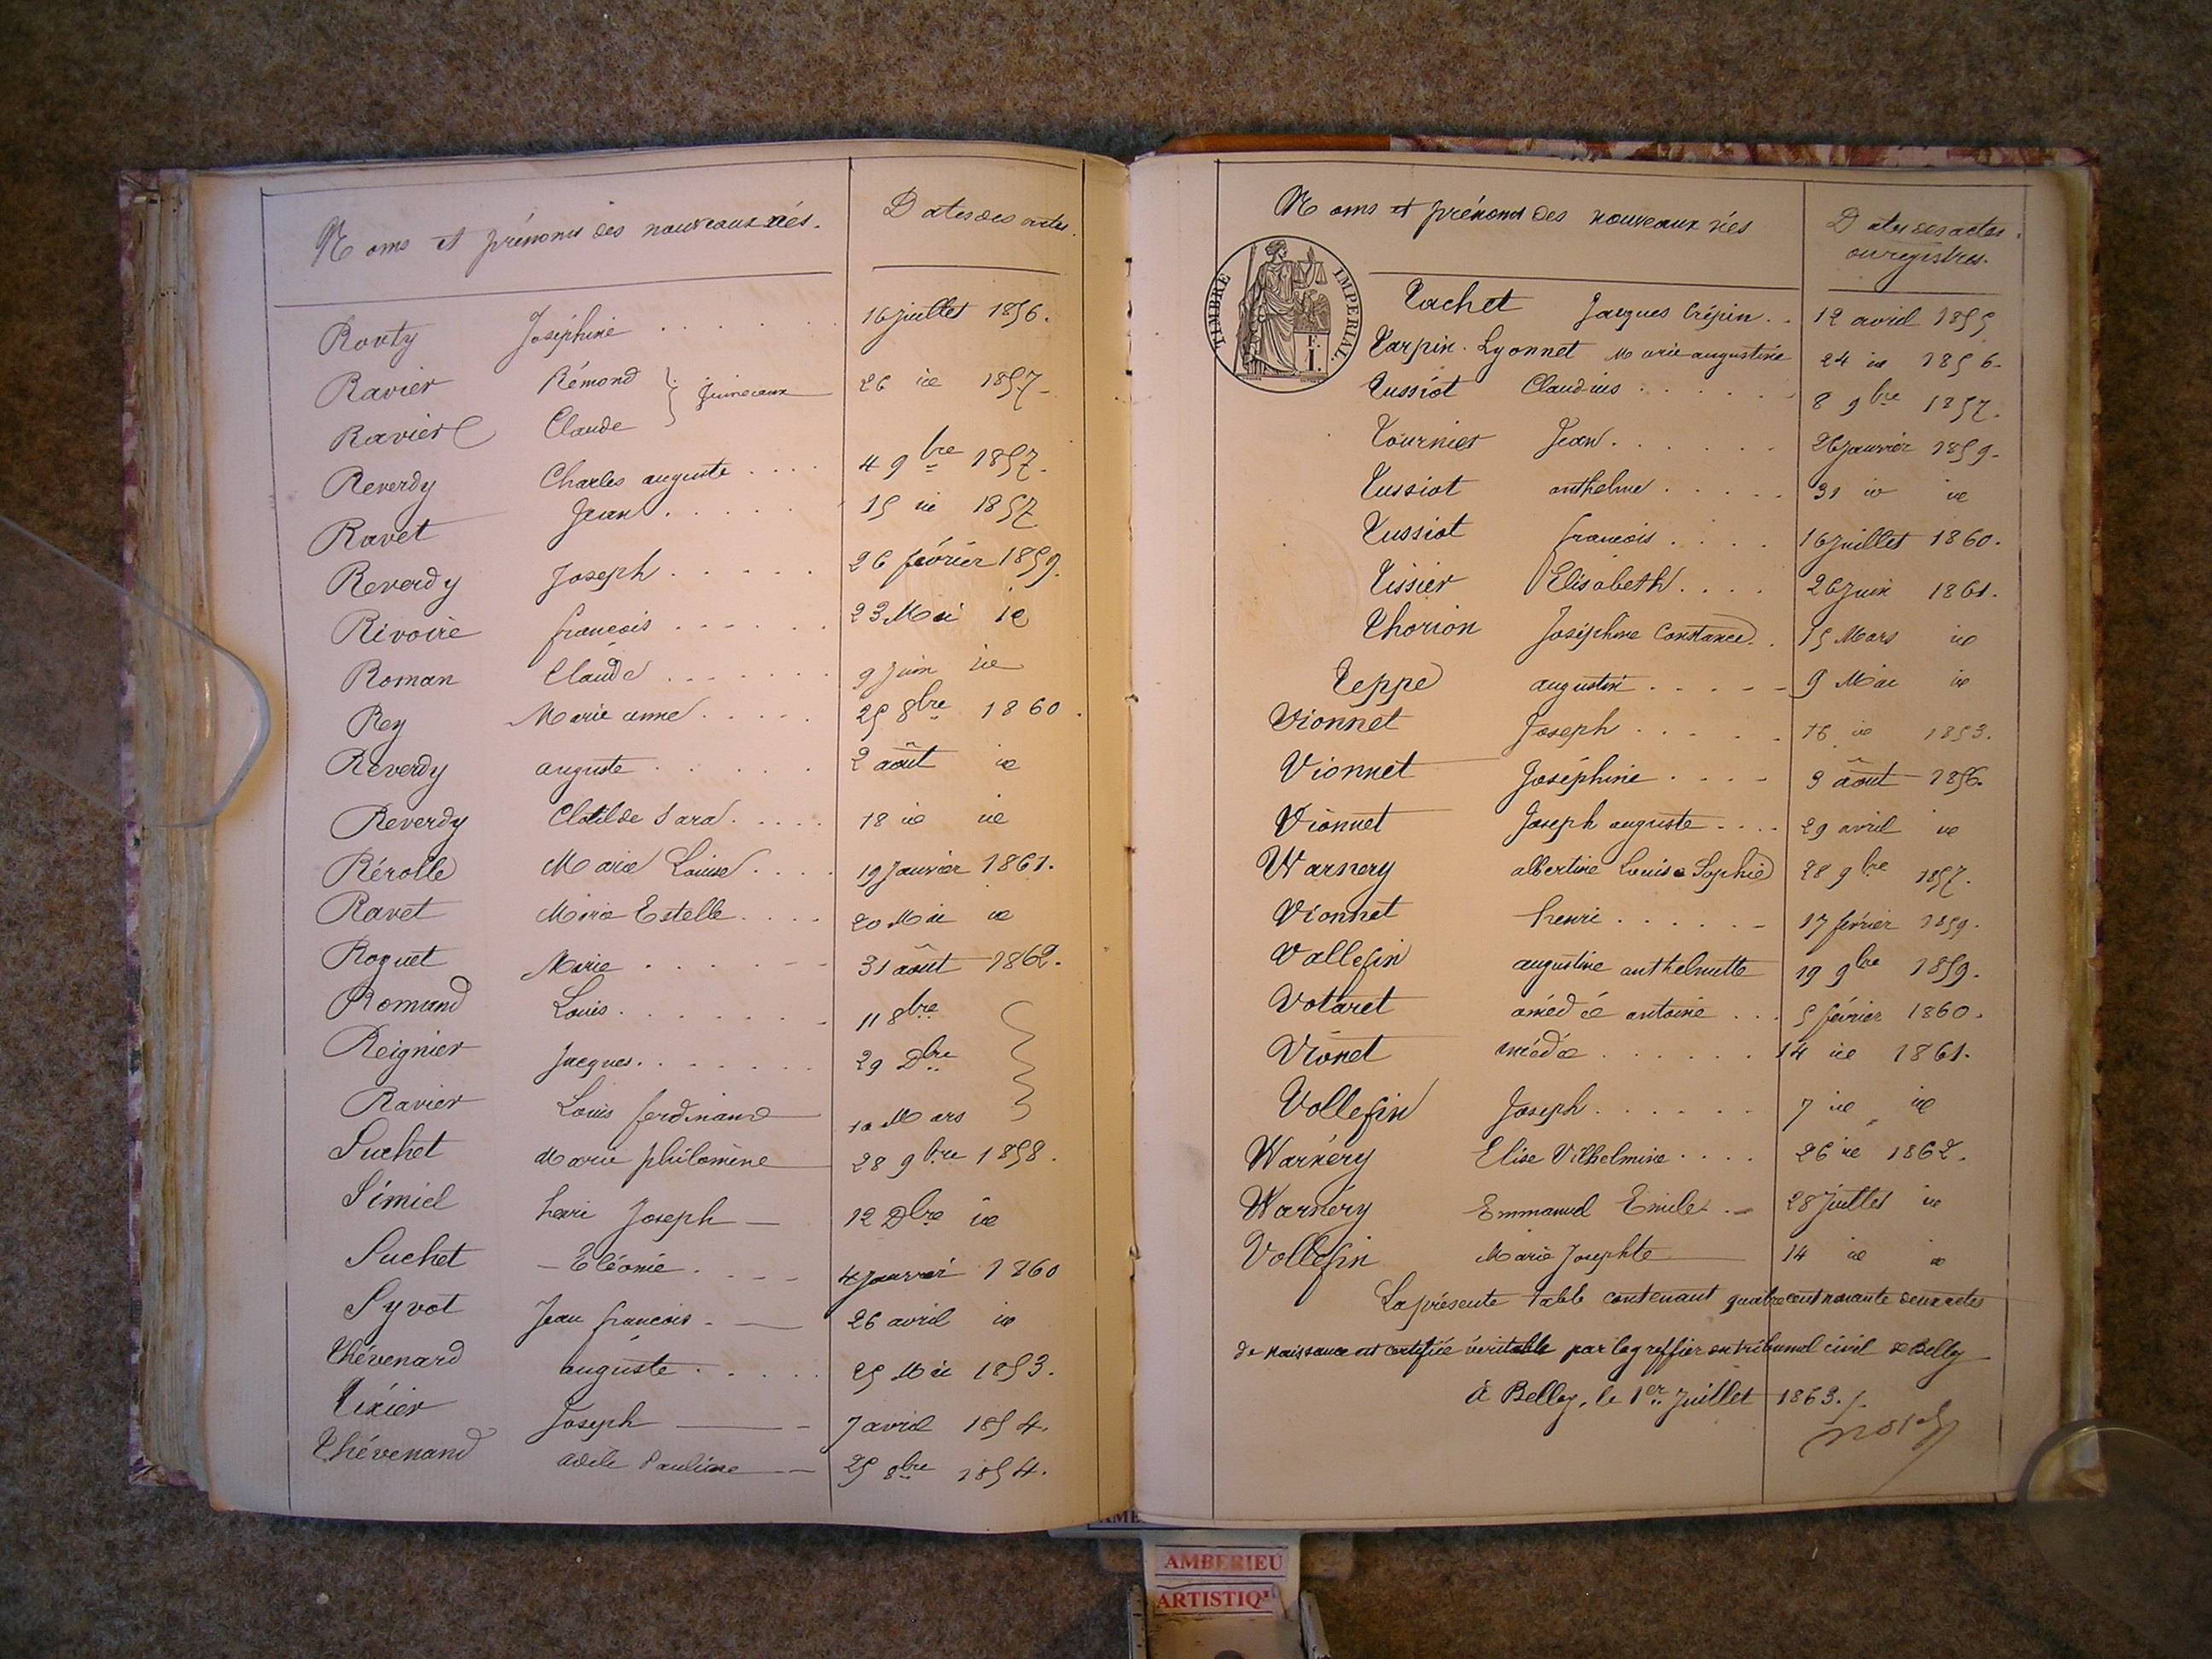 Noms et prénoms des nouveaux nés.
Dates des actes.
Routy Joséphine 16 juillet 1856.
Ravier Rémond 26 id 1857
Ravier Claude jumeaux
Reverdy Charles auguste 4 9bre 1857.
Ravet Jean 15 id 1857
Reverdy Joseph 26 février 1859.
Rivoire françois 23 Mai id
Roman Claude 9 Juin id
Rey Marie anne 25 8bre 1860.
Reverdy auguste 2 août id
Reverdy Clotilde Sara 18 id id
Rérolle Marie Louise 19 Janvier 1861.
Ravet Marie Estelle 20 Mai id
Roguet Marie 31 août 1862.
Romand Louis 11 8bre
Reignier Jacques 29 Dbre
Ravier Louis ferdinand 10 Mars
Suchet Marie philomène 28 9bre 1858.
Simiel henri Joseph 12 Dbre id
Suchet Eléonie 4 Janvier 1860
Syvot Jean françois 26 avril id
Thévenard auguste 25 Mai 1853.
Tixier Joseph 7 avril 1854.
Thévenard adèle Pauline 25 8bre 1854.
Noms et prénoms des nouveaux nés
Dates des actes
ou registres.
TIMBRE IMPERIAL.
E.
I.
Tachet Jacques Crépin 12 avril 1855
Tarpin-Lyonnet Marie augustine 24 id 1856.
Tussiot Claudius 8 9bre 1857.
Tournier Jean 26 janvier 1859.
Tussiot anthelme 31 id id
Tussiot françois 16 Juillet 1860.
Tissier Elisabeth 26 Juin 1861.
Thorion Joséphine Constance 15 Mars id
Teppe augustin 9 Mai id
Vionnet Joseph 16 id 1853.
Vionnet Joséphine 9 août 1856.
Vionnet Joseph auguste 29 avril id
Warnery albertine Louise Sophie 28 9bre 1857.
Vionnet henri 17 février 1859.
Vallefin augustine anthelmette 19 9bre 1859.
Votaret amédée antoine 5 février 1860.
Vionet amédée 14 id 1861.
Vollefin Joseph 7 id id
Warnéry Elise Vilhelmine 26 id 1862.
Warnéry Emmanuel Emile 28 Juillet id
Vollefin Marie Josephte 14 id id
La présente table contenant quatre cent noxante deux actes
de naissance est certifiée véritable par le greffier du tribunal civil de Belley
à Belley, le 1er Juillet 1863.
AMBERIEU
ARTISTIQ